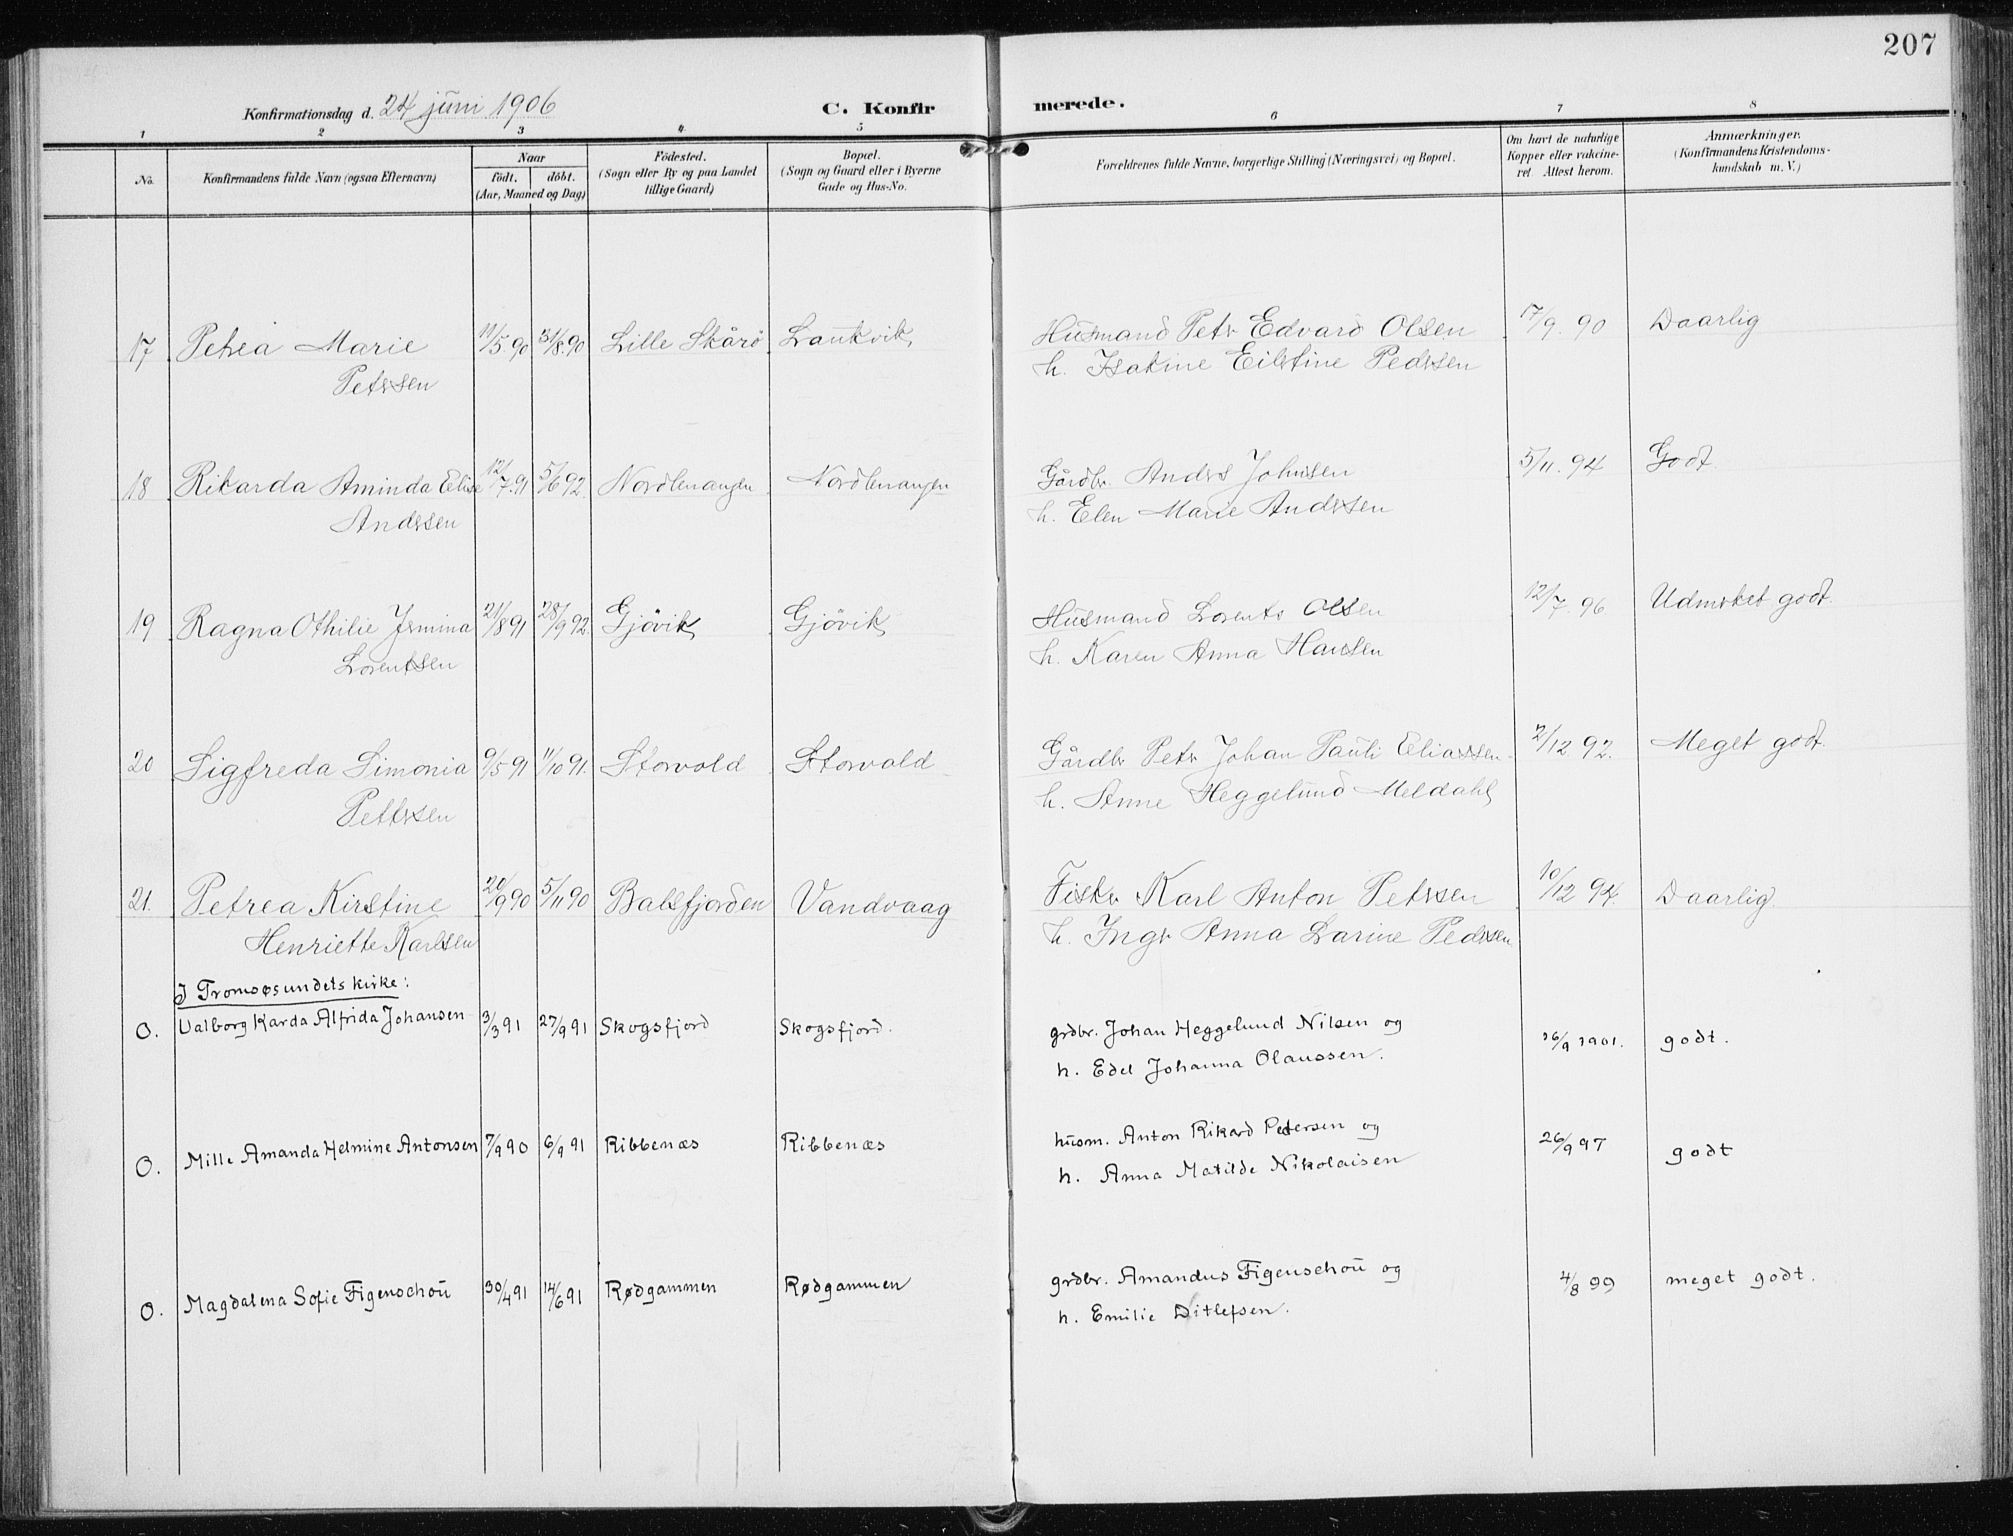 207
Konfirmationsdag d. 24 juni 1906 C. Konfirmerede.
1 2 3 4 5 6 7 8
No.
Konfirmandens fulde Navn (ogsaa Efternavn)
Naar
født. døbt.
(Aar, Maaned og Dag)
Fødested.
(Sogn eller By og paa Landet
tillige Gaard)
Bopæl.
(Sogn og Gaard eller i Byerne
Gade og Hus-No.
Forældrenes fulde Navne, borgerlige Stilling (Næringsvei) og Bopæl.
Om havt de naturlige
Kopper eller vakcine-
ret Attest herom.
Anmærkninger.
(Konfirmandens Kristendoms-
kundskab m. V.)
17 Petrea Marie 11/5 90 31/8.90 Lille Skårö Lankvik, Husmand Petr Edvard Olsen 17/9. 90 Daarlig
Petersen h. Isakine Eilertine Pedersen
18 Rikarda Aminda Elise 12/7.91 5/6 92 Nordlenangen Nordlenangen Gårdbr. Anders Johnsen 5/11. 94 Godt
Andersen h. Elen Marie Andersen
19 Ragna Othilie Jermina 21/8 91 28/9 92 Gjövik Gjövik Husmand Lorents Olsen 12/7. 96 Udmerket godt.
Lorentsen h. Karen Anna Hansen
20 Sigfreda Simonia 9/5 91 11/10 91. Storvold Storvold Gårdbr Petr Johan Pauli Eliassen 2/12 92. Meget godt.
Pettersen h. Anne Heggelund Meldahl
21. Petrea Kirstine 20/9 90 5/11 90 Balsfjorden Vandvaag Fisker Karl Anton Petersen 10/12 94. Daarlig.
Henriette Karlsen h. Inger Anna Larine Pedersen
I Tromsøsundets kirke:
O. Valborg Karda Alfrida Johansen 3/3 91 27/9 91 Skogsfjord Skogsfjord. grdbr. Johan Heggelund Nilsen og 16/9 1901. godt.
h. Edel Johanna Olaussen.
O. Mille Amanda Helmine Antonsen 7/9 90 6/9 91 Ribbenæs Ribbenæs husm. Anton Rikard Petersen og 26/9 97 godt
h. Anna Matilde Nikolaisen
O. Magdalena Sofie Figenschou 30/4 91 14/6 91 Rødgammen Rødgammen grdbr. Amandus Figenschou og 4/8 99 meget godt.
h. Emilie Ditlefsen.